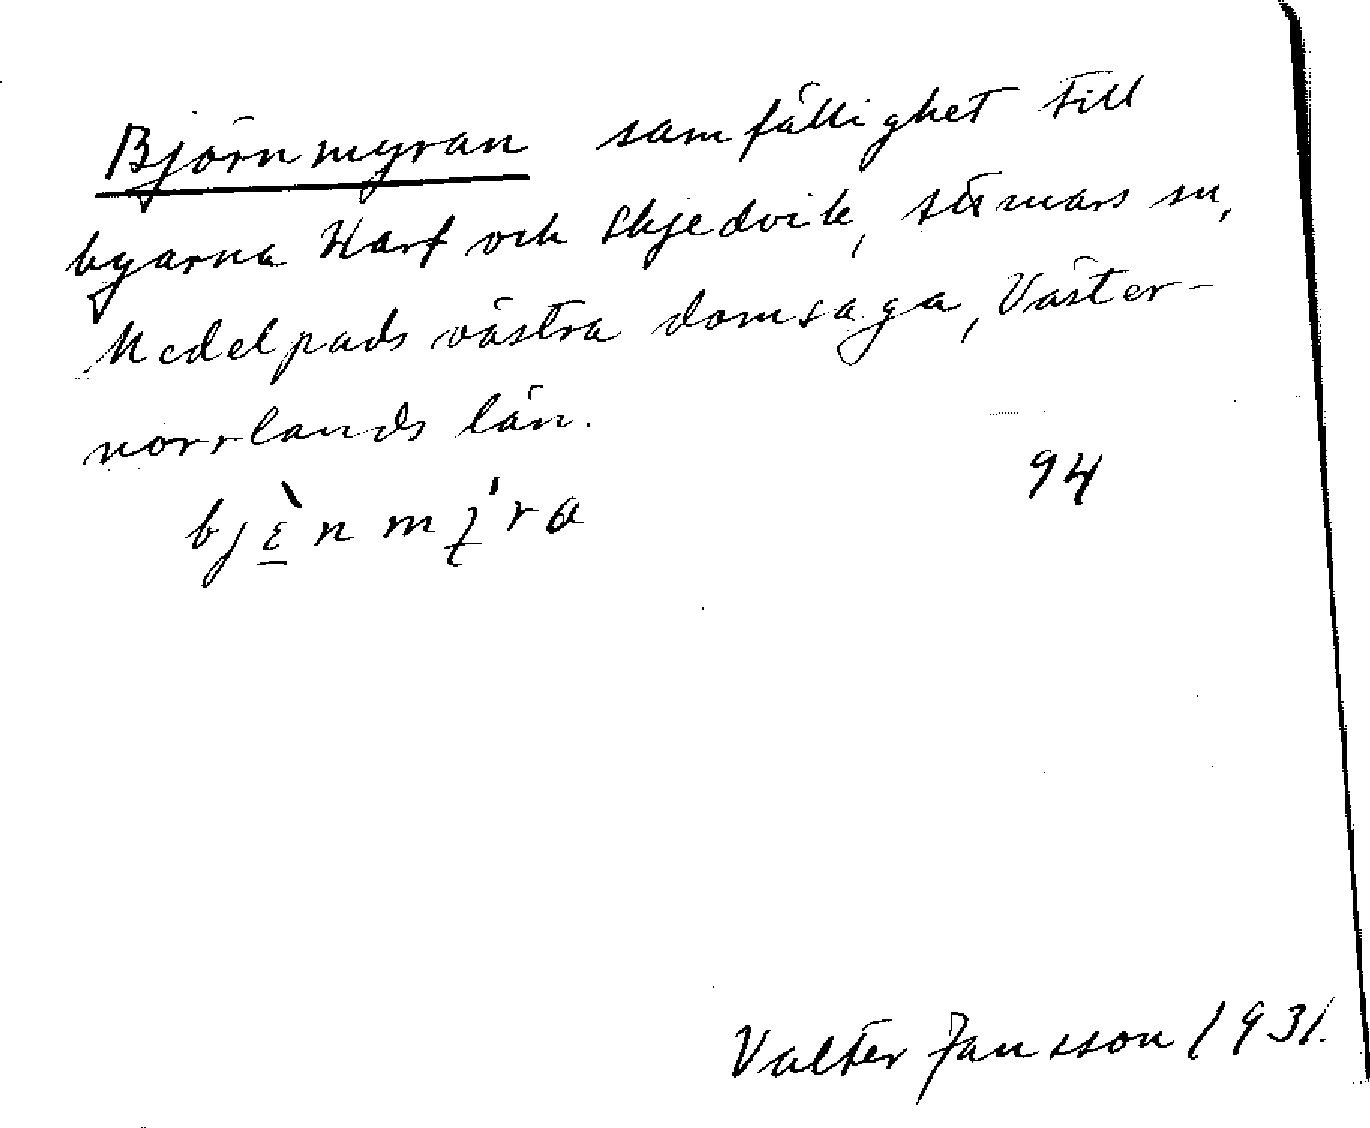 Björnmyran samfällighet till
byarna Harf och Skjedvik, Attmars sn,
Medelpads västra domsaga, Väster-
norrlands län.
94
Valter Jansson 1931.